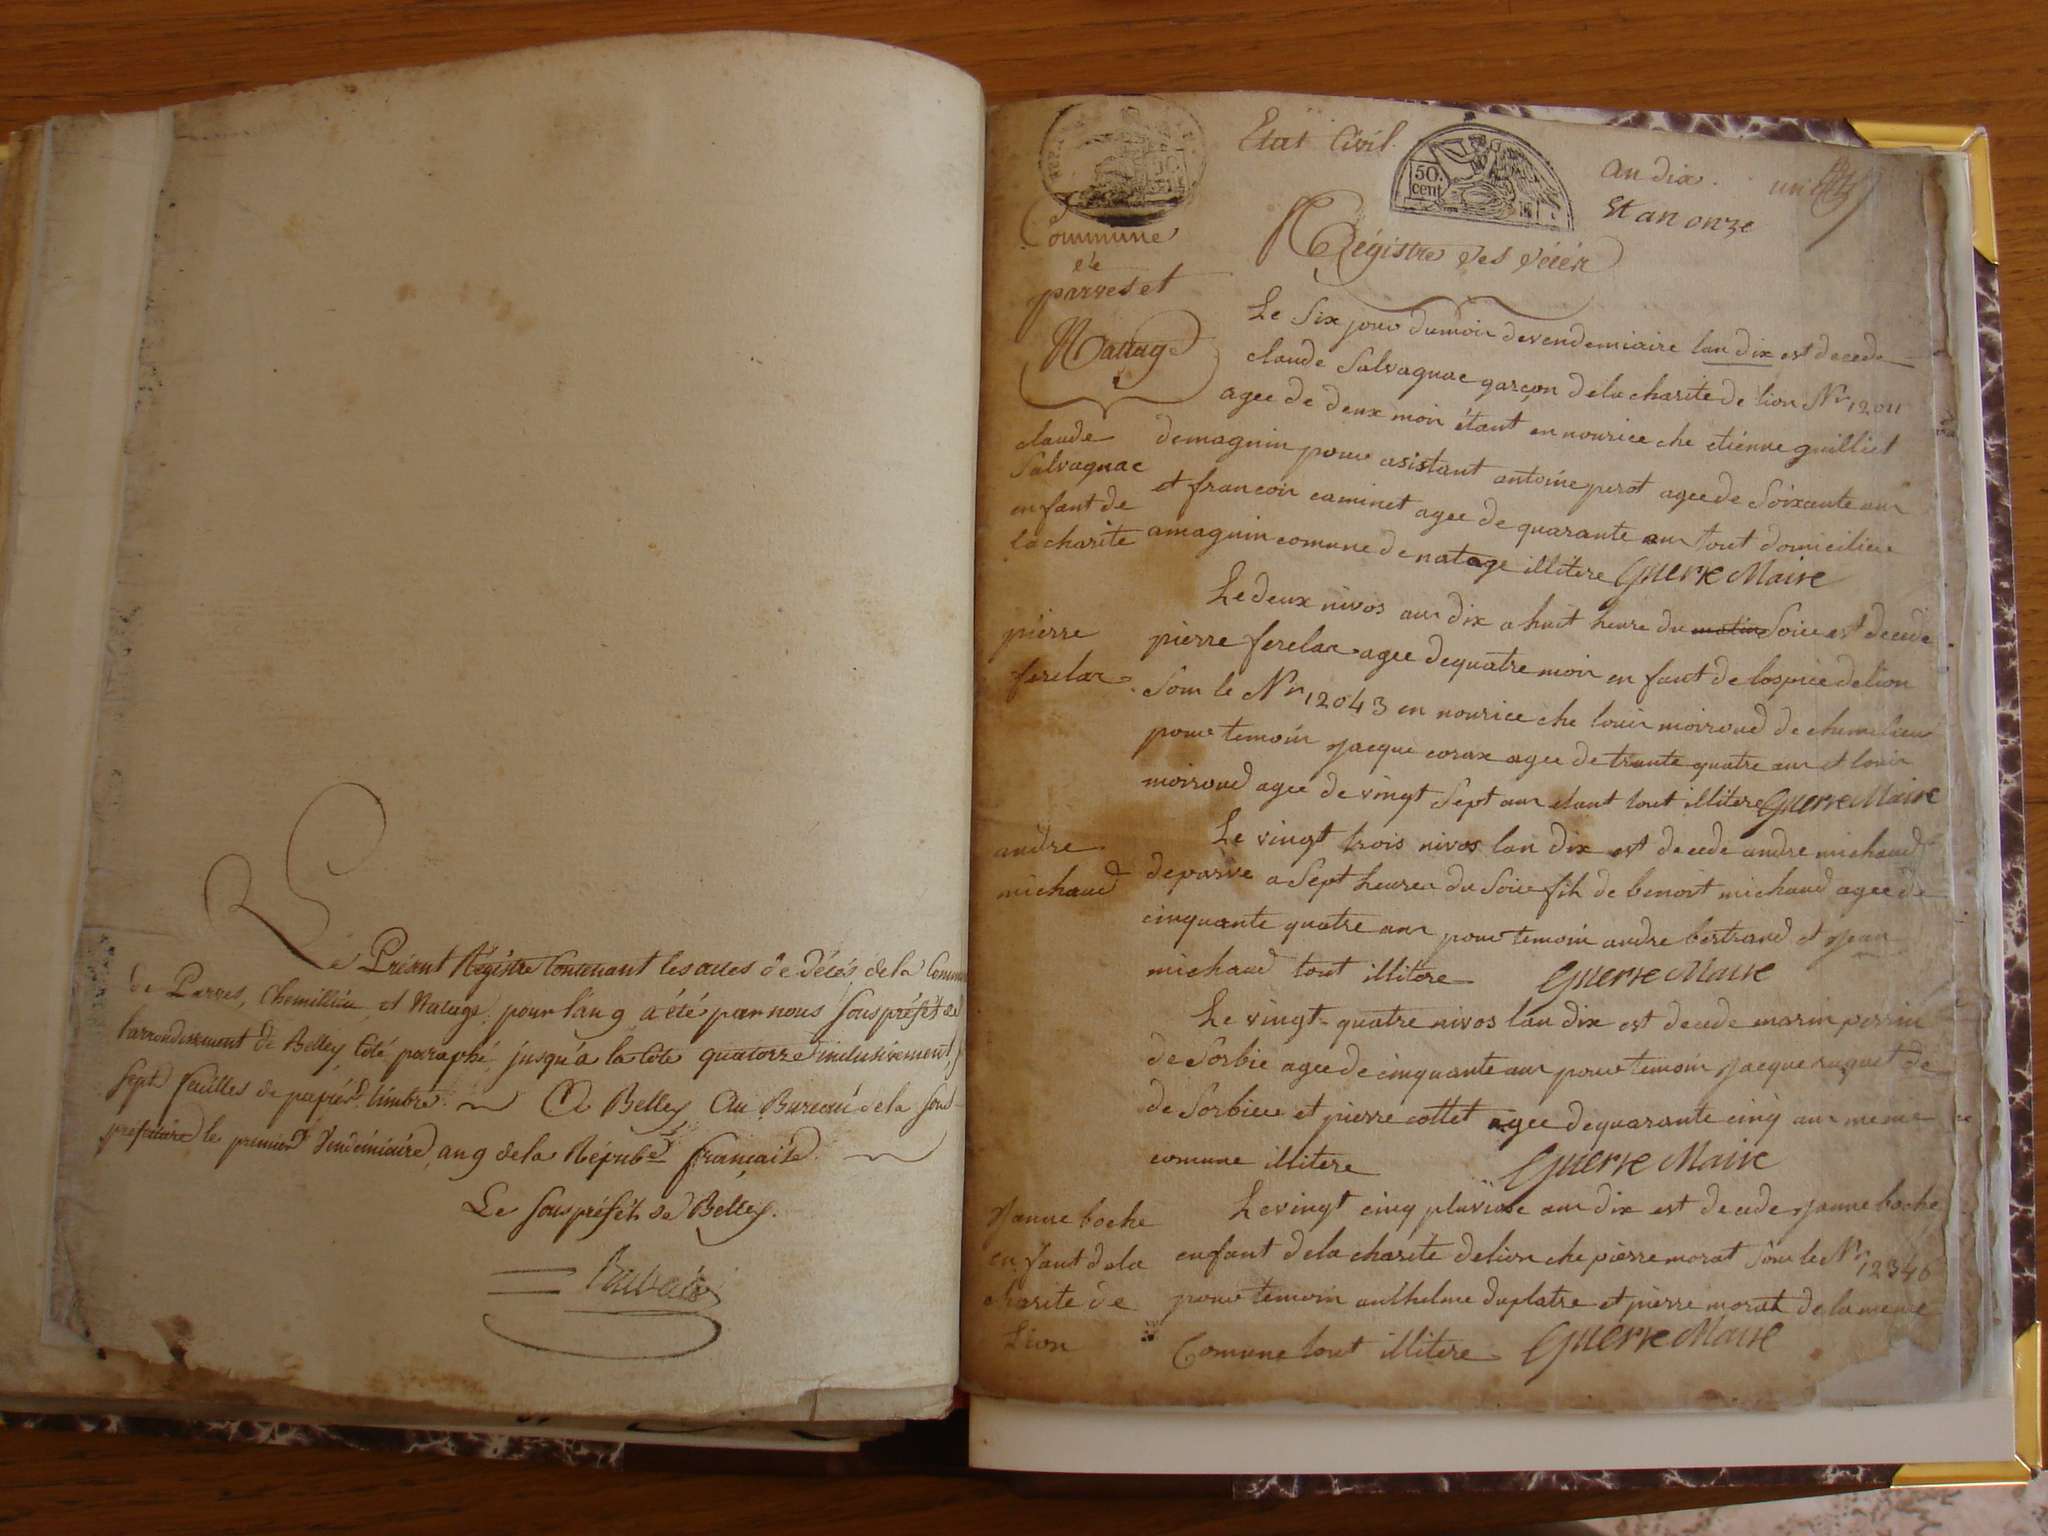 Le Présent Régistre Contenant les actes de décés de la Commun
de Parves, Chemillieu, et Natage, pour l'an 9 a été par nous Souspréfet de
larrondissement de Belley, Coté paraphé, jusqu'a la Cote quatorze inclusivement,
Sept feuilles de papier timbré. A Belley Au Bureau de la Sous-
prefecture le premier Vendémiaire an 9 de la Répub.e française.
Le Souspréfet de Belley.
Etat Civil.
50.
cent
an dix.
Et an onze
un
Commune
de
parves et
Natage
Régistre des décér
Le Six jour dumoir devendemiaire lan dix est decede
claude Salvagnac garçon dela charite de lion Nr 12011
agee de deux moir étant en nourice che etienne guilliet
demagnin pour asistant antoine perot agee de Soixante anr
et francoir caminet agee de quarante anr tout domiciliee
amagnin comune de natage illitere Guerre Maire
claude
Salvagnac
enfant de
la charite
Le deux nivos anr dix a huit heure du matin Soire est decede
pierre ferelar agee dequatre moir en fant de lospice delion
Sour le Nr 12043 en nourice che louir moiroud de chemilieu
pour temoin Jacque corax agee de trante quatre anr et louir
moiroud agee de vingt Sept anr etant tout illitere Guerre Maire
pierre
ferelar
Le vingt trois nivos lan dix est decede andre michaud
deparve a Sept heurer du Soire fih de benoit michaud agee de
cinquante quatre anr pour temoin andre bertrand et Jean
michaud tout illitere Guerre Maire
andre
michaud
Le vingt-quatre nivos lan dix est decede marin perrin
de Sorbie agee de cinquante anr pour temoin Jacque ruguet de
de Sorbieu et pierre collet agee dequarante cinq anr meme
comune illitere Guerre Maire
Le vingt cinq pluviose anr dix est decede Janne boche
enfant dela charite delion che pierre morat Sour le Nr 12346
pour temoin anthelme duplatre et pierre morat de la meme
Comune tout illitere Guerre Maire
Janne boche
en fant dela
charite de
Lion